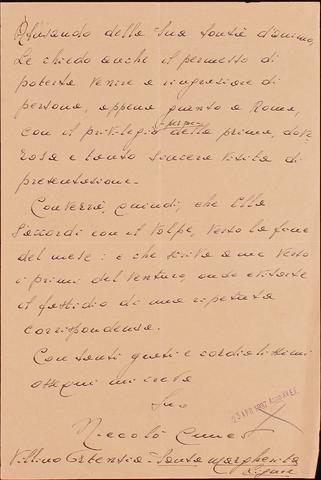 Abusando della Sua bontà d'animo,
Le chiedo anche il permesso di
poterla venire a ringraziare di
persona, appena giunto a Roma,
con il privilegio della prima, dove-
rosa e tanto sincera visita di
presentazione.
Converrà, quindi, che Ella
s'accordi con il Volpe, verso la fine
del mese: e che scriva a me verso
i primi del venturo, onde evitarle
il fastidio di una ripetuta
corrispondenza.
Con tanti grati e cordialissimi
ossequi mi creda
Suo
Niccolò
Villino Ortensia - Santa Margherita
Ligure